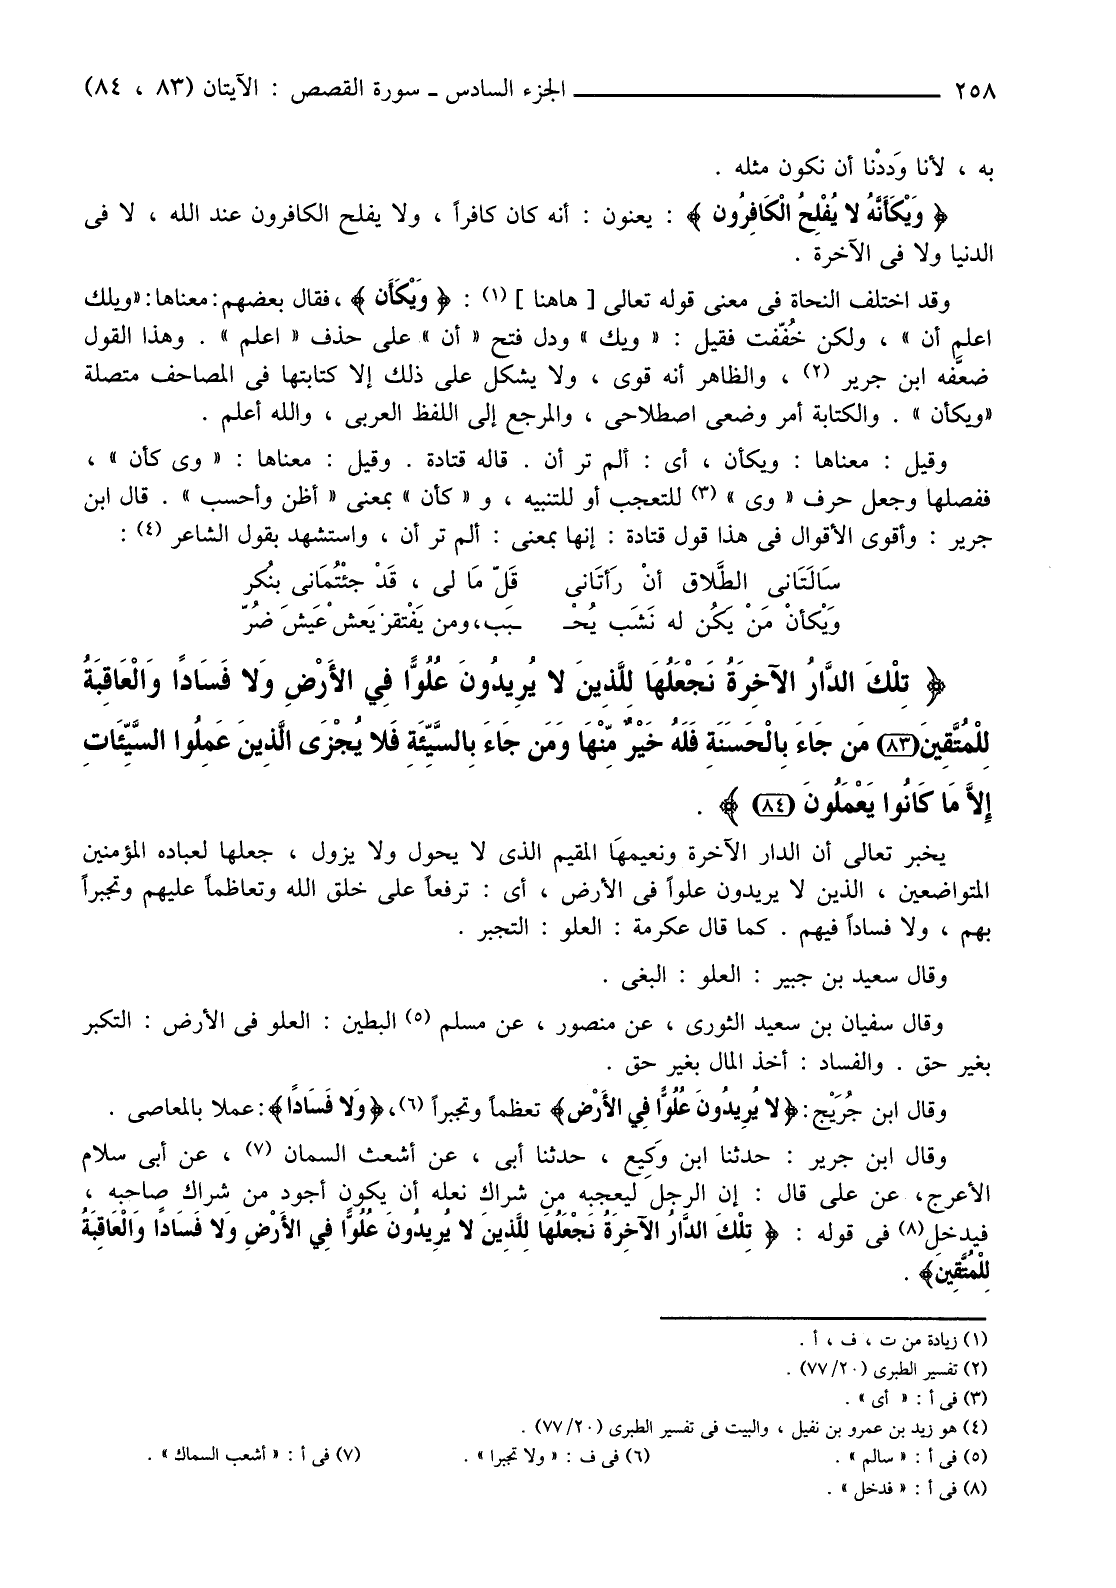 ٢٥٨ ــــــــــــــــ الجزء السادس ـ سورة القصص : الآيتان (٨٣ ، ٨٤)
به ، لأنا وَددْنا أن نكون مثله .
﴿ وَيْكَأَنَّهُ لا يُفْلِحُ الْكَافِرُون ﴾ : يعنون : أنه كان كافراً ، ولا يفلح الكافرون عند الله ، لا فى
الدنيا ولا فى الآخرة .
وقد اختلف النحاة فى معنى قوله تعالى [ هاهنا ] (١) : ﴿ وَيْكَأَن ﴾ ، فقال بعضهم: معناها: «ويلك
اعلم أن » ، ولكن خُفّفت فقيل : « ويك » ودل فتح « أن » على حذف « اعلم » . وهذا القول
ضعَّفه ابن جرير (٢) ، والظاهر أنه قوى ، ولا يشكل على ذلك إلا كتابتها فى المصاحف متصلة
«ويكأن » . والكتابة أمر وضعى اصطلاحى ، والمرجع إلى اللفظ العربى ، والله أعلم .
وقيل : معناها : ويكأن ، أى : ألم تر أن . قاله قتادة . وقيل : معناها : « وى كأن » ،
ففصلها وجعل حرف « وى » (٣) للتعجب أو للتنبيه ، و « كأن » بمعنى « أظن وأحسب » . قال ابن
جرير : وأقوى الأقوال فى هذا قول قتادة : إنها بمعنى : ألم تر أن ، واستشهد بقول الشاعر (٤) :
سَالَتَانى الطَّلاق أنْ رَأتَانى قَلّ مَا لى ، قَدْ جئْتُمَانى بنُكر
وَيْكأنْ مَنْ يَكُن له نَشَب يُحْـ ـبَب، ومن يَفْتقر يَعش عَيشَ ضُرّ
﴿ تِلْكَ الدَّارُ الآخِرَةُ نَجْعَلُهَا لِلَّذِينَ لا يُرِيدُونَ عُلُوًّا فِي الأَرْضِ وَلا فَسَادًا وَالْعَاقِبَةُ
لِلْمُتَّقِينَ (٨٣) مَن جَاءَ بِالْحَسَنَةِ فَلَهُ خَيْرٌ مِّنْهَا وَمَن جَاءَ بِالسَّيِّئَةِ فَلا يُجْزَى الَّذِينَ عَمِلُوا السَّيِّئَاتِ
إِلاَّ مَا كَانُوا يَعْمَلُونَ (٨٤) ﴾ .
يخبر تعالى أن الدار الآخرة ونعيمهَا المقيم الذى لا يحول ولا يزول ، جعلها لعباده المؤمنين
المتواضعين ، الذين لا يريدون علواً فى الأرض ، أى : ترفعاً على خلق الله وتعاظماً عليهم وتجبراً
بهم ، ولا فساداً فيهم . كما قال عكرمة : العلو : التجبر .
وقال سعيد بن جبير : العلو : البغى .
وقال سفيان بن سعيد الثورى ، عن منصور ، عن مسلم (٥) البطين : العلو فى الأرض : التكبر
بغير حق . والفساد : أخذ المال بغير حق .
وقال ابن جُرَيْج: ﴿لا يُرِيدُونَ عُلُوًّا فِي الأَرْض﴾ تعظماً وتجبراً (٦)، ﴿وَلا فَسَادًا﴾: عملا بالمعاصى .
وقال ابن جرير : حدثنا ابن وَكِيع ، حدثنا أبى ، عن أشعث السمان (٧) ، عن أبى سلام
الأعرج، عن على قال : إن الرجل ليعجبه من شراك نعله أن يكون أجود من شراك صاحبه ،
فيدخل(٨) فى قوله : ﴿ تِلْكَ الدَّارُ الآخِرَةُ نَجْعَلُهَا لِلَّذِينَ لا يُرِيدُونَ عُلُوًّا فِي الأَرْضِ وَلا فَسَادًا وَالْعَاقِبَةُ
لِلْمُتَّقِينَ﴾ .
(١) زيادة من ت ، ف ، أ .
(٢) تفسير الطبرى (٢٠/ ٧٧) .
(٣) فى أ : « أى » .
(٤) هو زيد بن عمرو بن نفيل ، والبيت فى تفسير الطبرى (٢٠/ ٧٧) .
(٥) فى أ : « سالم » . (٦) فى ف : « ولا تجبرا » . (٧) فى أ : « أشعب السماك » .
(٨) فى أ : « فدخل » .